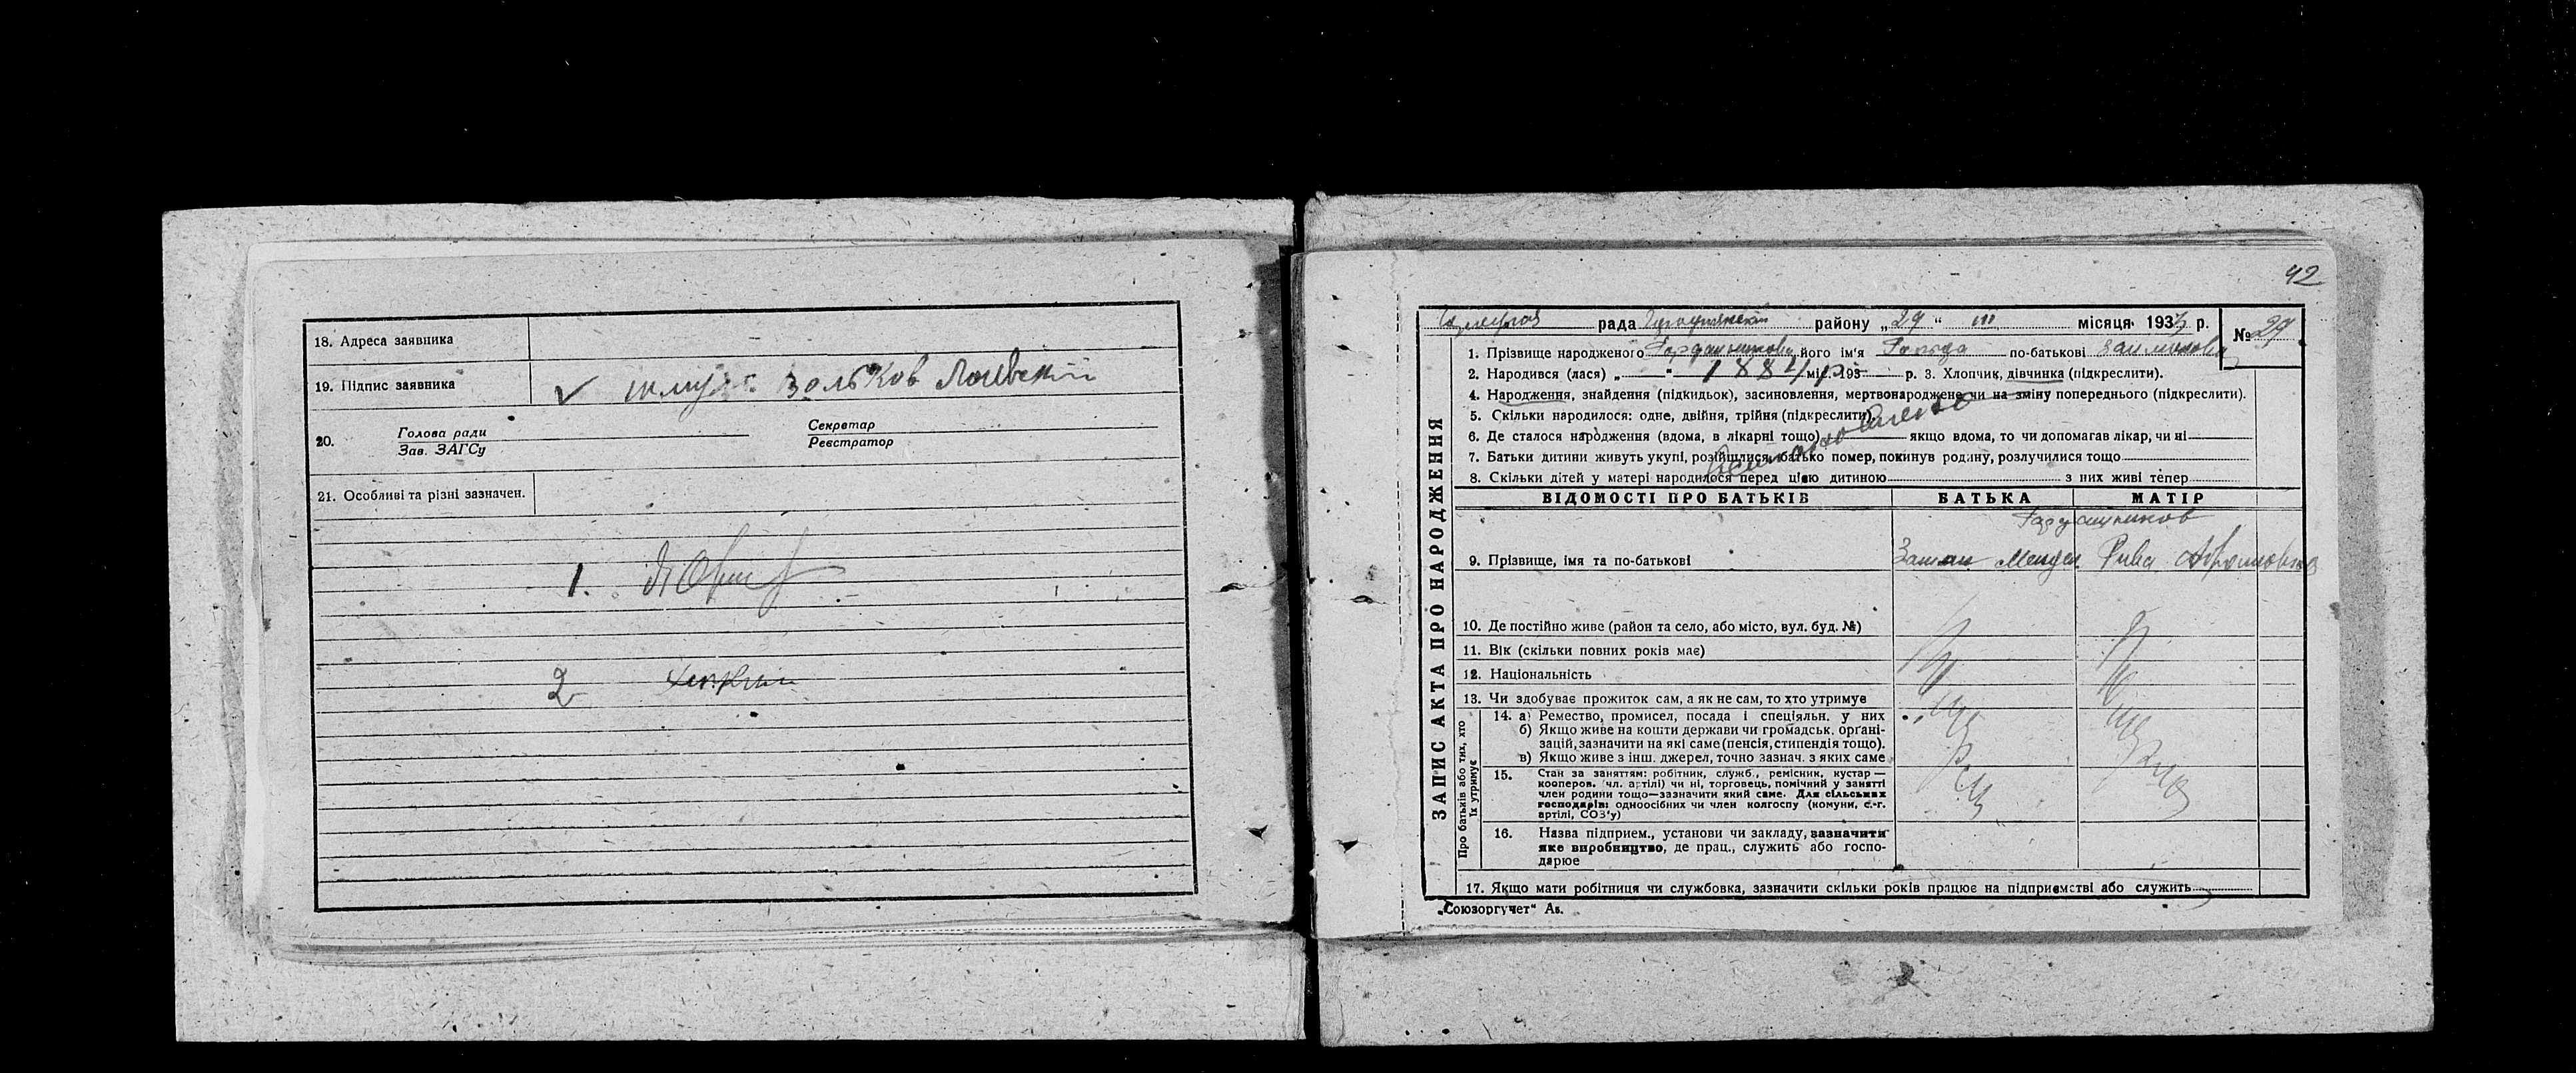 18. Адреса заявника
19. Підпис заявника
20. Голова ради
Зав. ЗАГСу
Секретар
Реєстратор
21. Особливі та різні зазначен.
1.
2
42
рада району „29“ III місяця 1933 р.
№ 29
1. Прізвище народженого його ім'я по-батькові
2. Народився (лася) „ “ 1884 р міс. 193 р. 3. Хлопчик, дівчинка (підкреслити).
4. Народження, знайдення (підкидьок), засиновлення, мертвонароджене чи на зміну попереднього (підкреслити).
5. Скільки народилося: одне, двійня, трійня (підкреслити)
6. Де сталося народження (вдома, в лікарні тощо) якщо вдома, то чи допомагав лікар, чи ні
7. Батьки дитини живуть укупі, розійшлися, батько помер, покинув родину, розлучилися тощо
8. Скільки дітей у матері народилося перед цією дитиною з них живі тепер
ЗАПИС АКТА ПРО НАРОДЖЕННЯ
ВІДОМОСТІ ПРО БАТЬКІВ БАТЬКА МАТІР
9. Прізвище, імя та по-батькові Залман Мендел Рива Абрамовна
10. Де постійно живе (район та село, або місто, вул. буд. №)
11. Вік (скільки повних років має)
12. Національність
13. Чи здобуває прожиток сам, а як не сам, то хто утримує
Про батьків або тих, хто їх утримує
14. а) Ремество, промисел, посада і спеціяльн. у них
б) Якщо живе на кошти держави чи громадськ. органі-
зацій, зазначити на які саме (пенсія, стипендія тощо).
в) Якщо живе з інш. джерел, точно зазнач. з яких саме
15. Стан за заняттям: робітник, служб., ремісник, кустар —
кооперов. чл. артілі) чи ні, торговець, помічний у занятті
член родини тощо—зазначити який саме. Для сільських
господарів: одноосібних чи член колгоспу (комуни, с.-г.
артілі, СОЗ'у)
16. Назва підприєм., установи чи закладу, зазначити
яке виробництво, де прац., служить або госпо-
дарює
17. Якщо мати робітниця чи службовка, зазначити скільки років працює на підприємстві або служить
„Союзоргучет“ Ав.